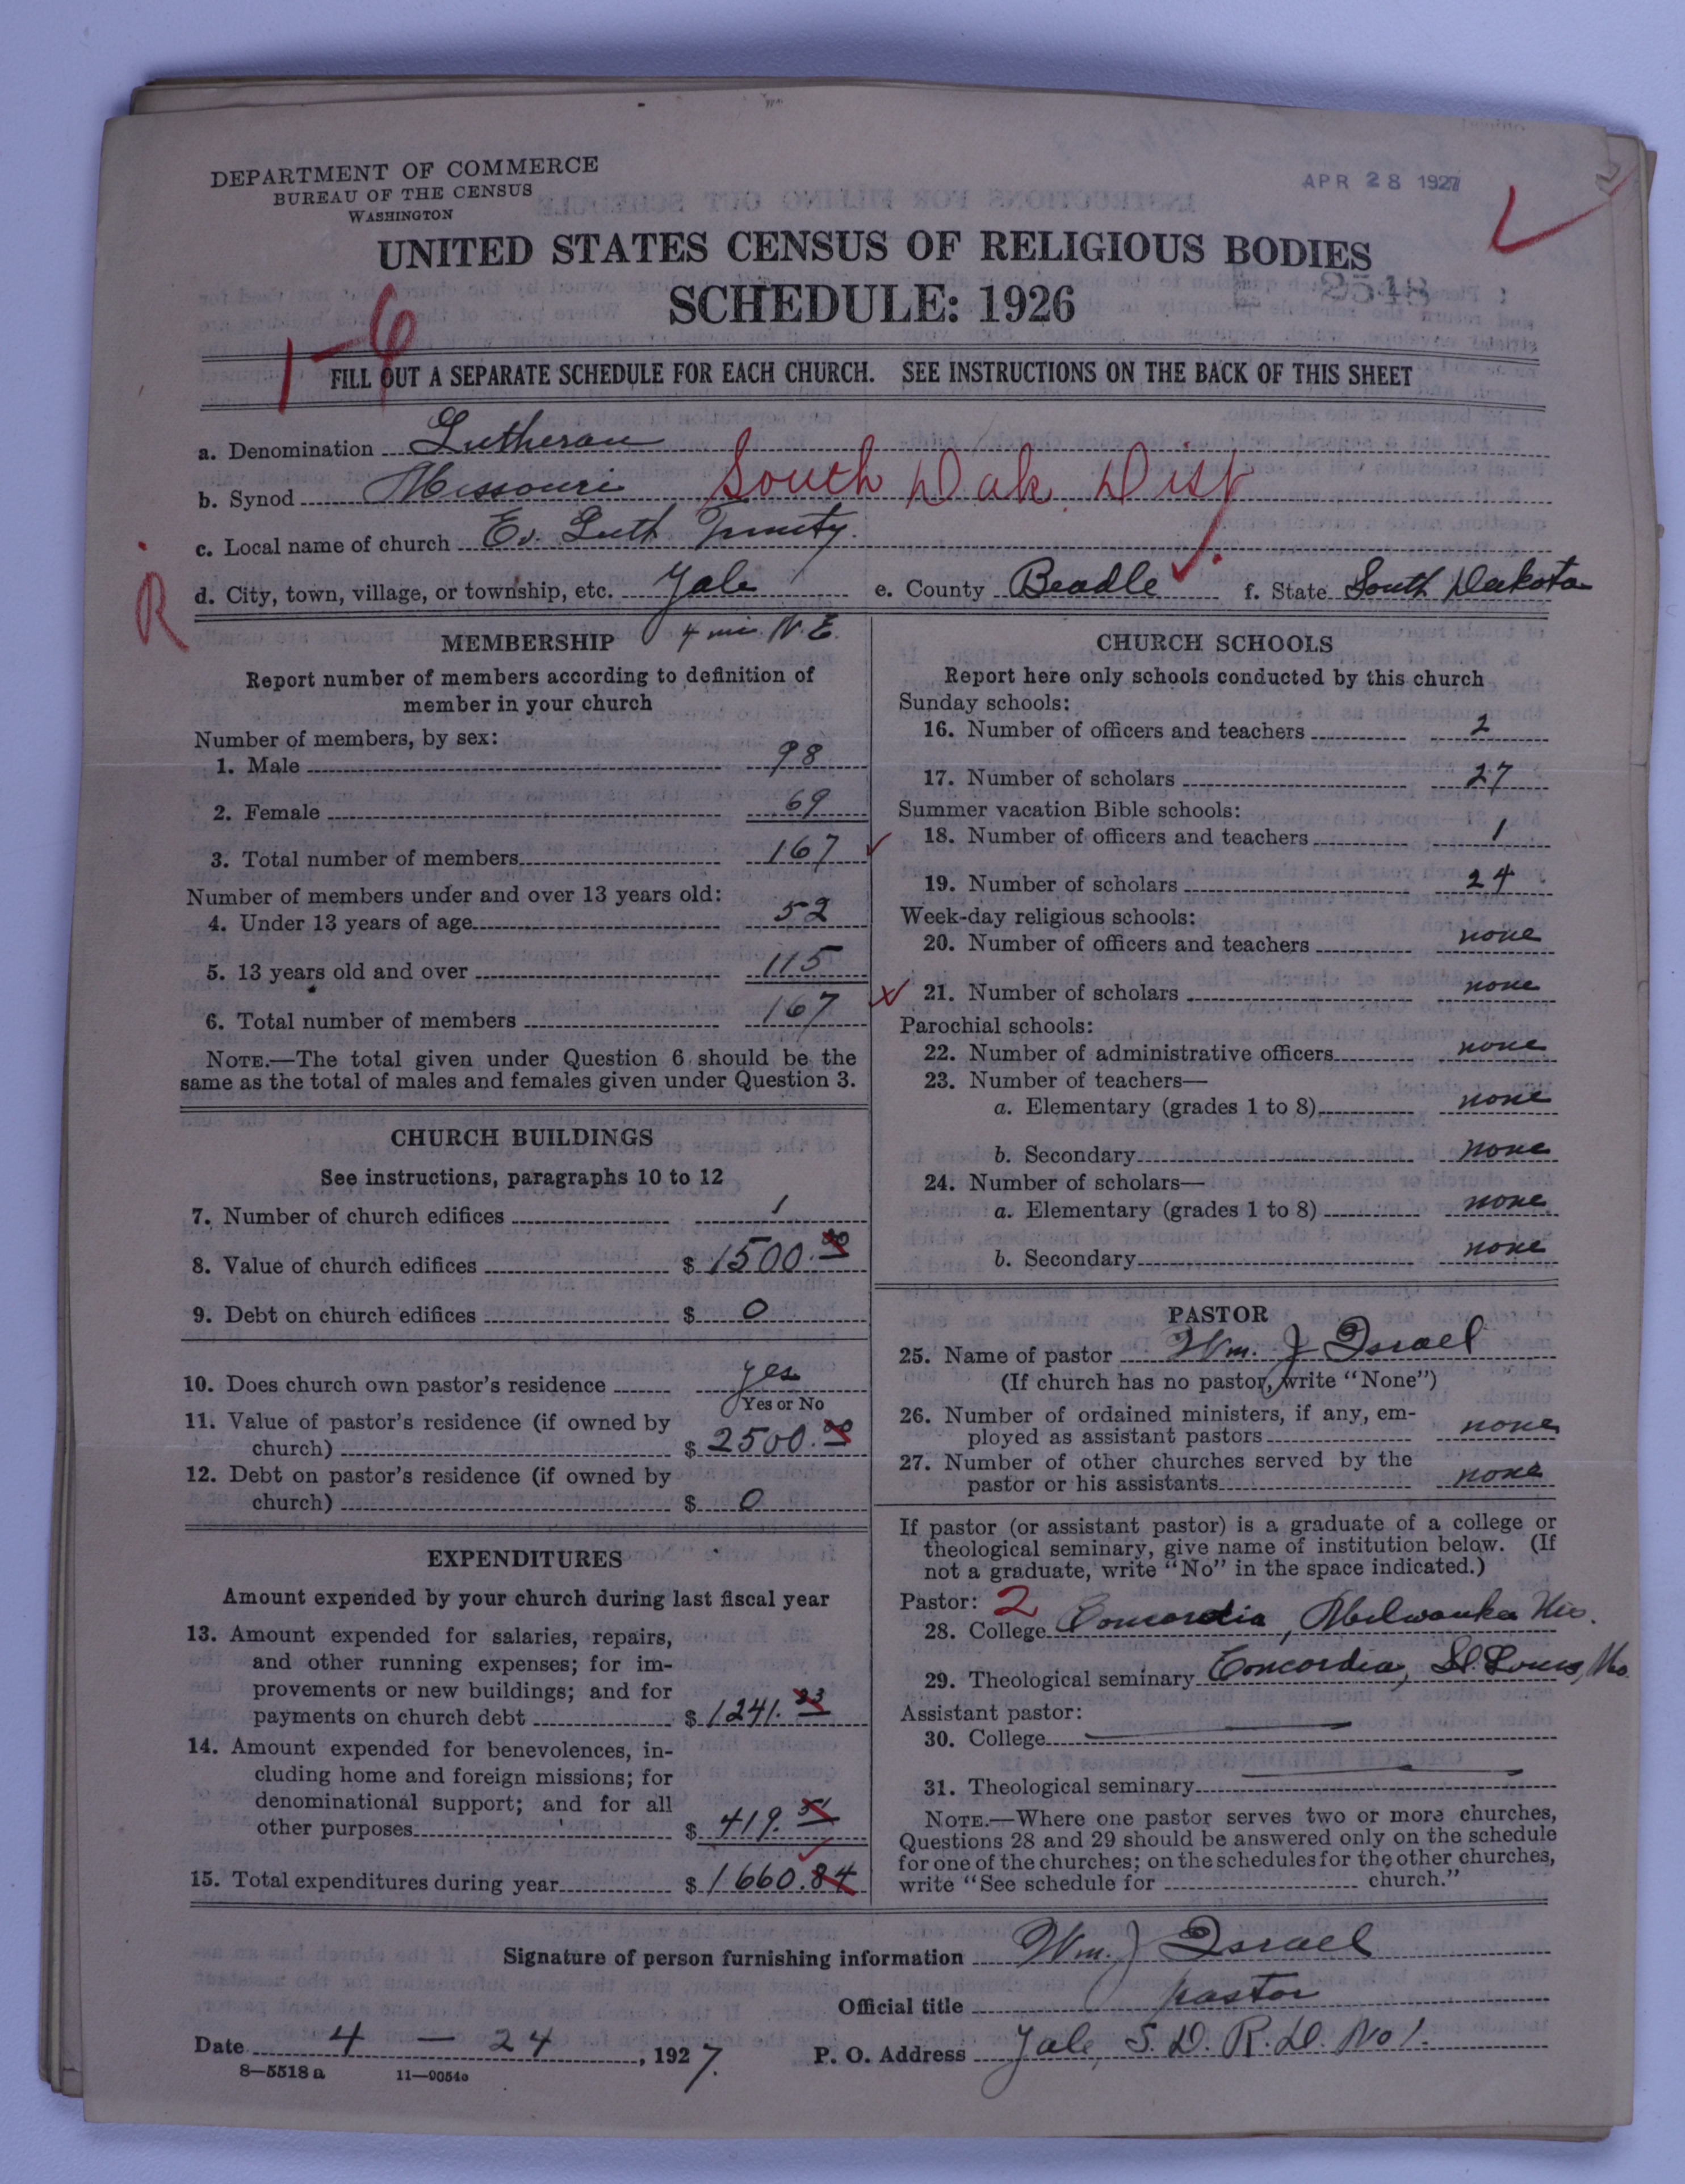 DEPARTMENT OF COMMERCE
BUREAU OF THE CENSUS
WASHINGTON
APR 28 1927
UNITED STATES CENSUS OF RELIGIOUS BODIES
SCHEDULE: 1926
2548
1-6
FILL OUT A SEPARATE SCHEDULE FOR EACH CHURCH. SEE INSTRUCTIONS ON THE BACK OF THIS SHEET
a. Denomination Lutheran
b. Synod Missouri South Dak. Dist
c. Local name of church Ev. Luth Trinity.
R
d. City, town, village, or township, etc. Yale e. County Beadle f. State South Dakota
4 mi. N.E.
MEMBERSHIP
Report number of members according to definition of
member in your church
Number of members, by sex:
1. Male 98
2. Female 69
3. Total number of members 167
Number of members under and over 13 years old:
4. Under 13 years of age 52
5. 13 years old and over 115
6. Total number of members 167
NOTE.—The total given under Question 6 should be the
same as the total of males and females given under Question 3.
CHURCH BUILDINGS
See instructions, paragraphs 10 to 12
7. Number of church edifices 1
8. Value of church edifices $ 1500.00
9. Debt on church edifices $ 0
10. Does church own pastor's residence yes
Yes or No
11. Value of pastor's residence (if owned by
church) $ 2500.00
12. Debt on pastor's residence (if owned by
church) $ 0
EXPENDITURES
Amount expended by your church during last fiscal year
13. Amount expended for salaries, repairs,
and other running expenses; for im-
provements or new buildings; and for
payments on church debt $ 1241.33
14. Amount expended for benevolences, in-
cluding home and foreign missions; for
denominational support; and for all
other purposes $ 419.51
15. Total expenditures during year $ 1660.84
CHURCH SCHOOLS
Report here only schools conducted by this church
Sunday schools:
16. Number of officers and teachers 2
17. Number of scholars 27
Summer vacation Bible schools:
18. Number of officers and teachers 1
19. Number of scholars 24
Week-day religious schools:
20. Number of officers and teachers none
21. Number of scholars none
Parochial schools:
22. Number of administrative officers none
23. Number of teachers—
a. Elementary (grades 1 to 8) none
b. Secondary none
24. Number of scholars—
a. Elementary (grades 1 to 8) none
b. Secondary none
PASTOR
25. Name of pastor Wm. J Israel
(If church has no pastor, write "None")
26. Number of ordained ministers, if any, em-
ployed as assistant pastors none
27. Number of other churches served by the
pastor or his assistants none
If pastor (or assistant pastor) is a graduate of a college or
theological seminary, give name of institution below. (If
not a graduate, write "No" in the space indicated.)
Pastor: 2
28. College Concordia, Milwaukee Wis.
29. Theological seminary Concordia, St. Louis, Mo.
Assistant pastor:
30. College
31. Theological seminary
NOTE.—Where one pastor serves two or more churches,
Questions 28 and 29 should be answered only on the schedule
for one of the churches; on the schedules for the other churches,
write "See schedule for church."
Signature of person furnishing information Wm. J Israel
Official title pastor
Date 4 — 24, 1927. P. O. Address Yale, S. D. R.D. No 1.
8—5518 a 11—9054c